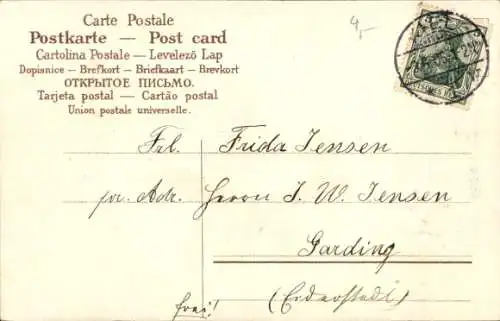 Carte Postale
Postkarte — Post card
Cartolina Postale — Levelezö Lap
Dopisnice — Brefkort — Briefkaart — Brevkort
ОТКРЫТОЕ ПИСЬМО.
Tarjeta postal — Cartão postal
Union postale universelle.
4,-
Frl. Frida Jensen
pr. Adr. Herrn J. W. Jensen
Garding
(Eiderstedt)
frei!